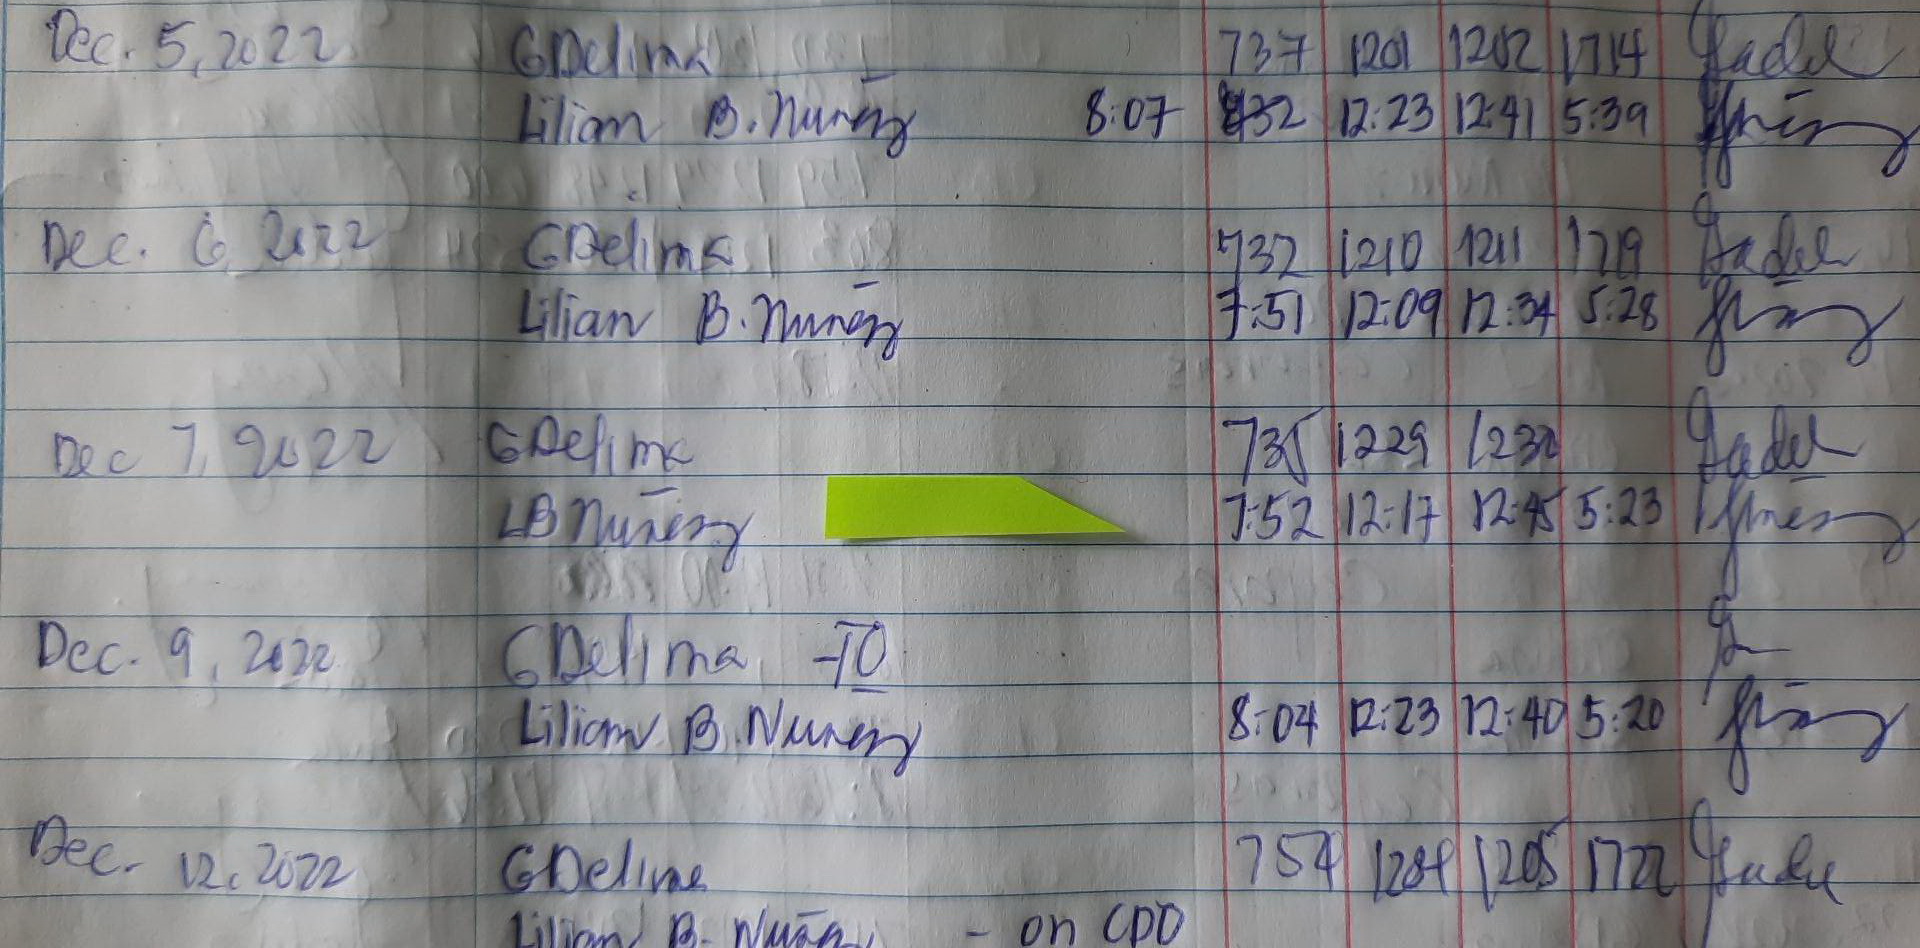 Dec. 5, 2022 GDelima 737 1201 1202 1714
Lilian B. Nuñez 8:07 12:23 12:41 5:39
Dec. 6, 2022 GDelima 732 1210 1211 1719
Lilian B. Nuñez 7:51 12:09 12:34 5:28
Dec 7, 2022 GDelima 735 1229 1232
LB Nuñez 7:52 12:17 12:45 5:23
Dec. 9, 2022 GDelima - TO
Lilian B. Nunez 8:04 12:23 12:40 5:20
Dec. 12, 2022 GDelima 754 1204 1205 1722
Lilian B. Nuñez - on CDO